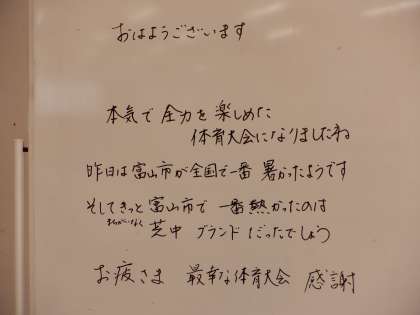 おはようございます
本気で全力を楽しめた
体育大会になりましたね
昨日は富山市が全国で一番暑かったようです
そしてきっと富山市で一番熱かったのは
まちがいなく
芝中グランドだったでしょう
お疲さま 最幸な体育大会 感謝